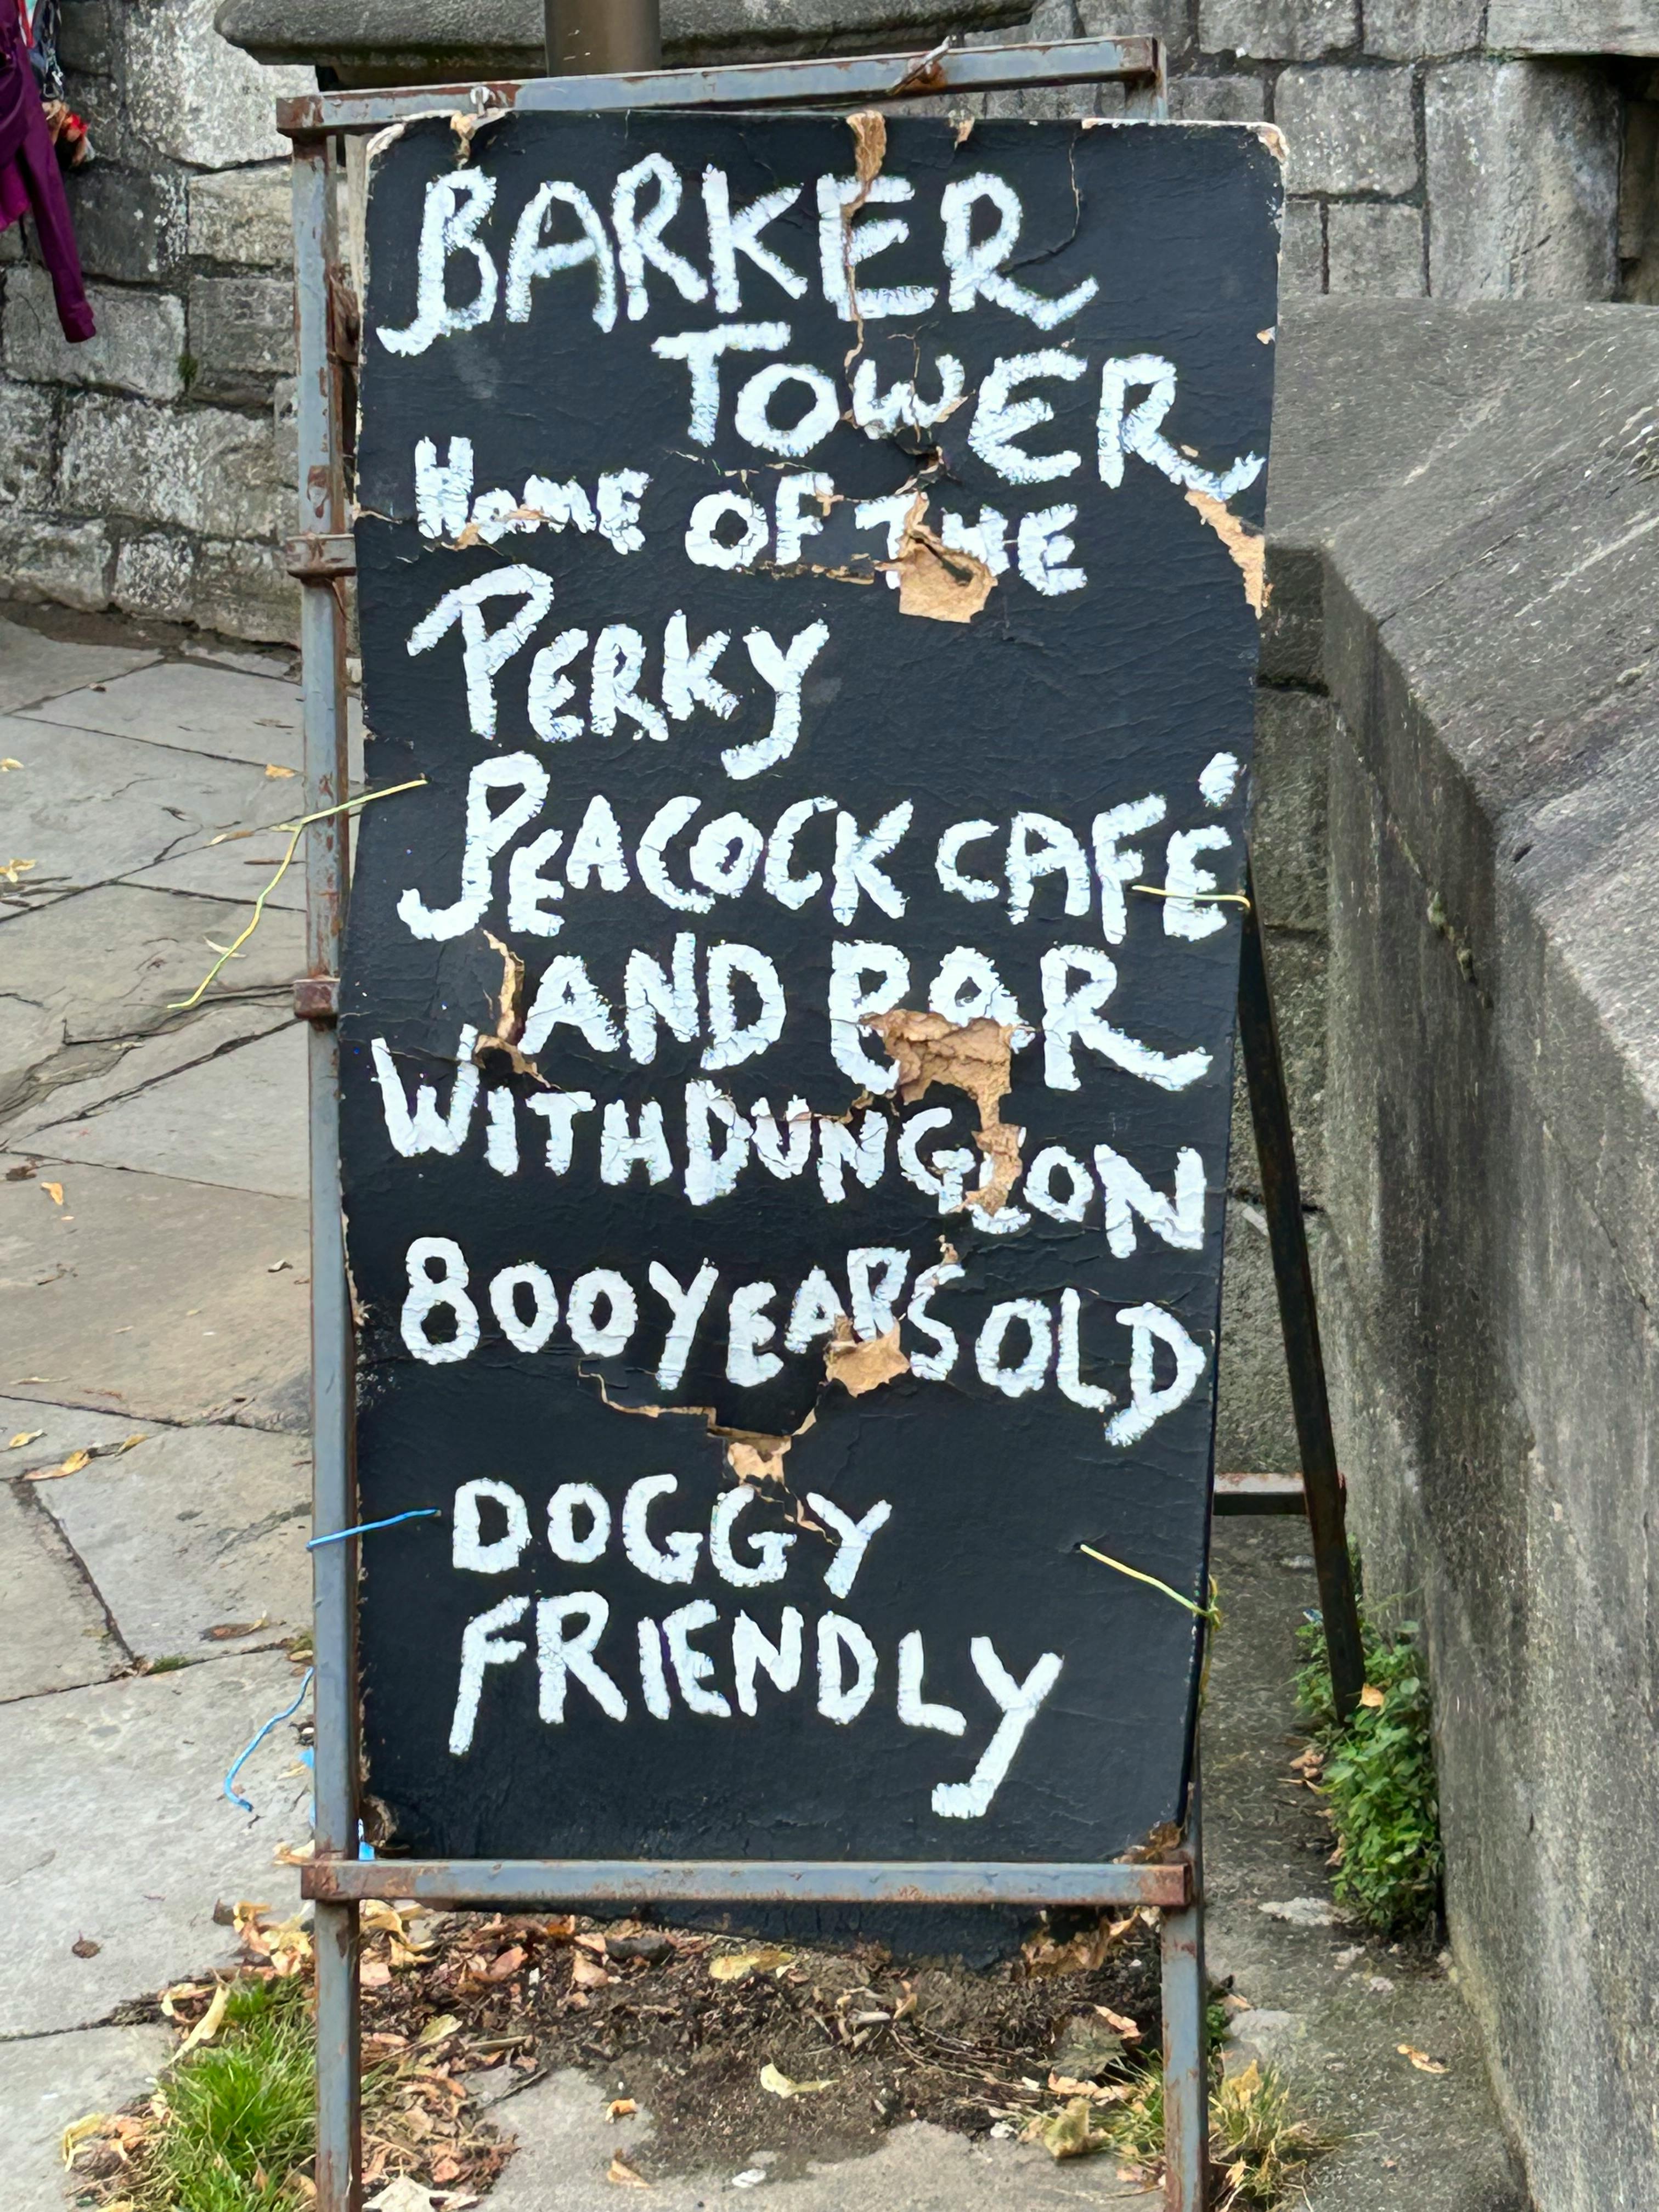 BARKER
TOWER
HOME OF THE
PERKY
PEACOCK CAFÉ
AND BAR
WITH DUNGEON
800 YEARS OLD
DOGGY
FRIENDLY